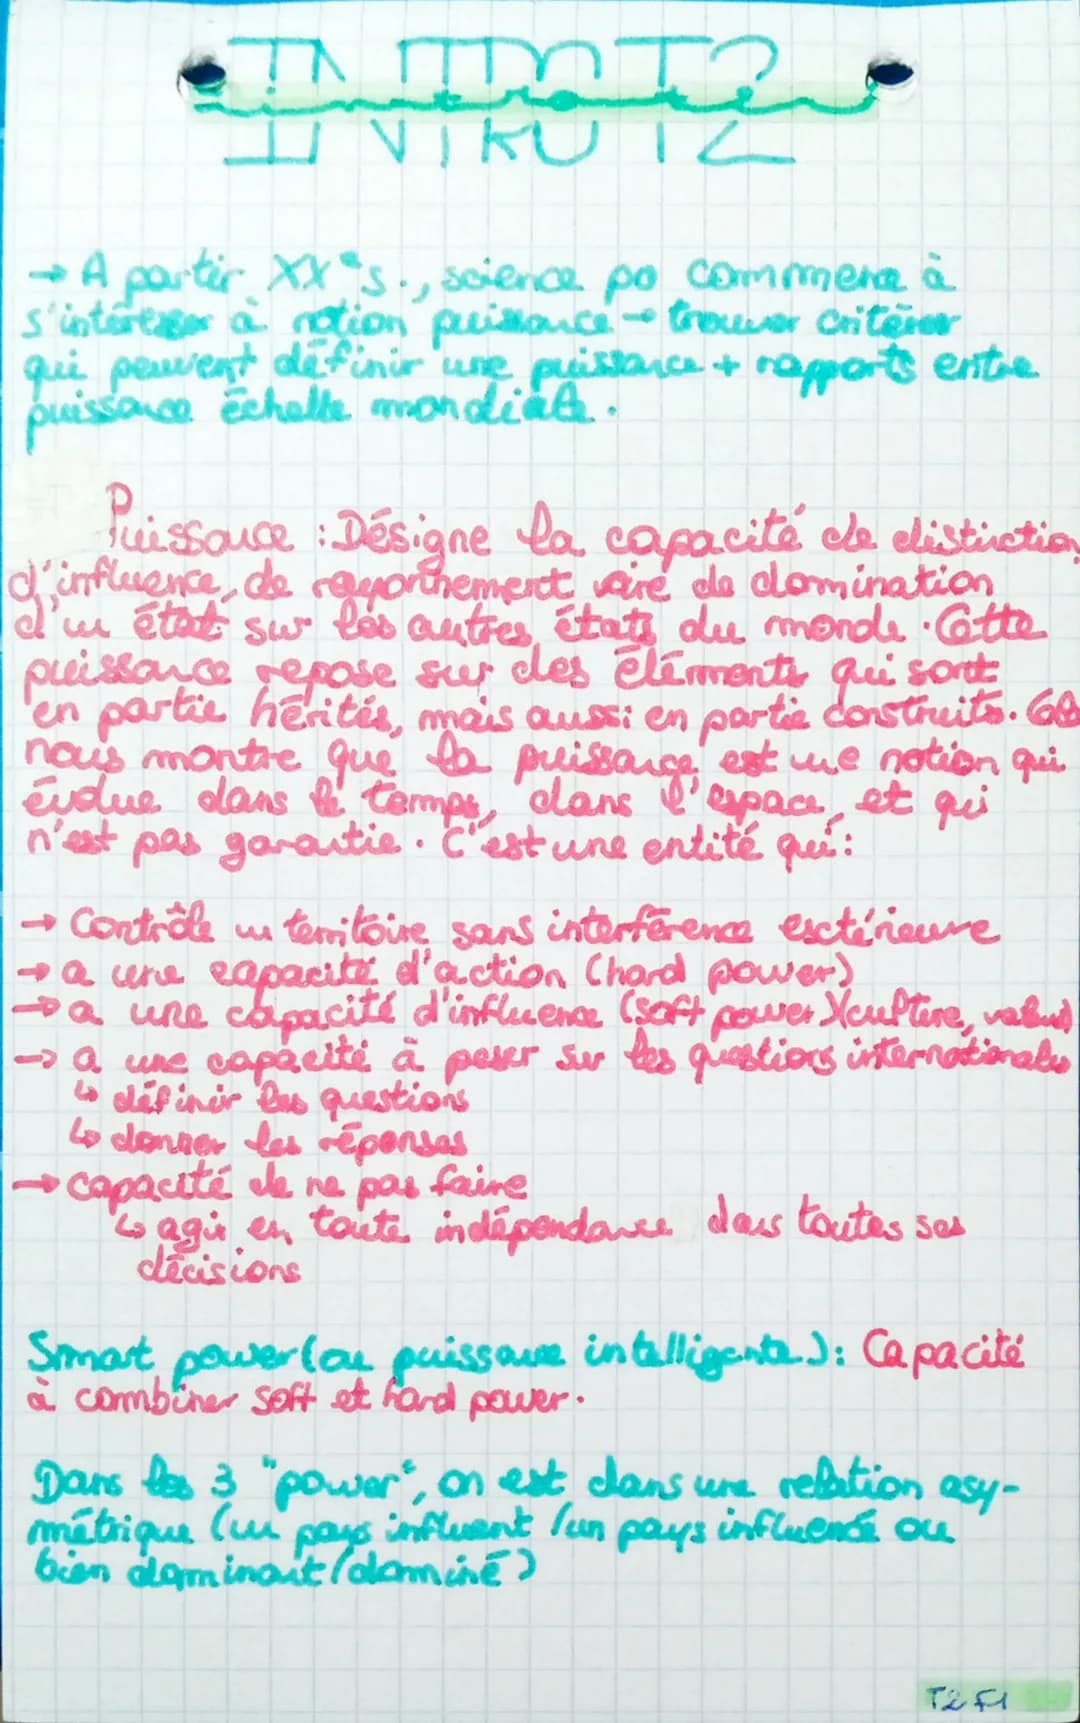 INTRO T2
→ A partir XXe s., science po commence à
s'intéresser à notion puissance → trouver critères
qui peuvent définir une puissance + rapports entre
puissance échelle mondiale.
Puissance : Désigne la capacité de distinction,
d'influence, de rayonnement voire de domination
d'un état sur les autres états du monde. Cette
puissance repose sur des éléments qui sont
en partie hérités, mais aussi en partie construits. Cela
nous montre que la puissance est une notion qui
évolue dans le temps, dans l'espace et qui
n'est pas garantie. C'est une entité qui :
→ Contrôle un territoire sans interférence extérieure
→ a une capacité d'action (hard power)
→ a une capacité d'influence (soft power)(culture, valeurs)
→ a une capacité à peser sur les questions internationales
↳ définir les questions
↳ donner les réponses
→ capacité de ne pas faire
↳ agir en toute indépendance dans toutes ses
décisions
Smart power (ou puissance intelligente) : Capacité
à combiner soft et hard power.
Dans les 3 "power", on est dans une relation asy-
métrique (un pays influent / un pays influencé ou
bien dominant/dominé)
T2 F1